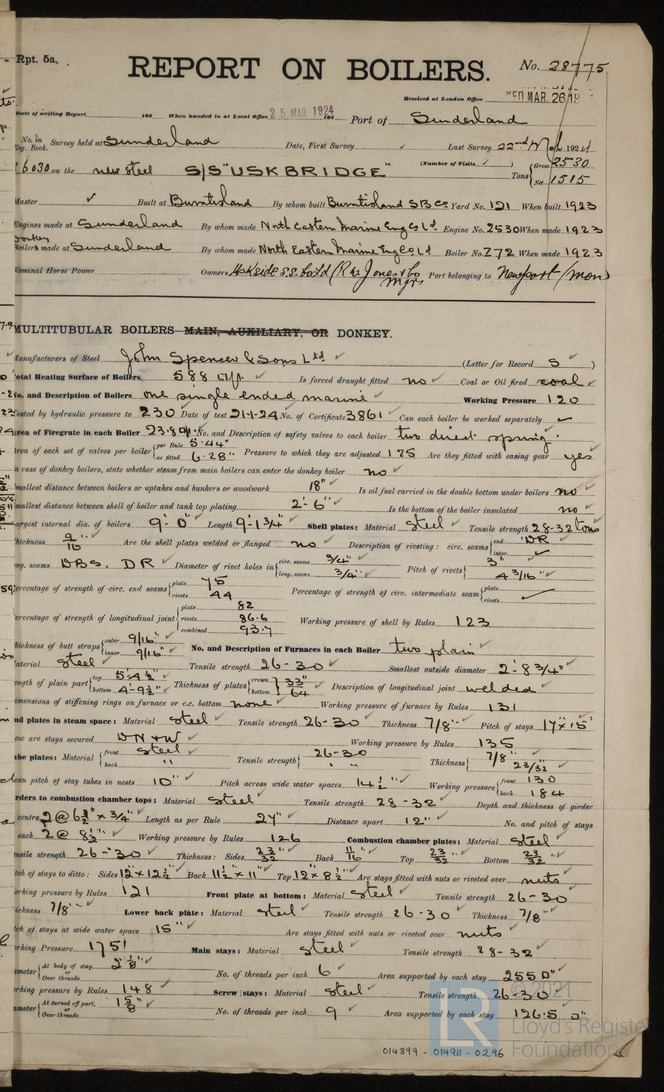 Rpt. 5a,
REPORT ON BOILERS.
No. 28775
Received at London Office WED MAR. 26 19
Date of writing Report 192 When handed in at Local Office 25 MAR 1924 192 Port of Sunderland
No. in Reg. Book. Survey held at Sunderland Date, First Survey ✓ Last Survey 22nd Mch 1924
26030 on the new steel S/S "USKBRIDGE" (Number of Visits ✓ ) Tons { Gross 2530 Net 1515
Master ✓ Built at Burntisland By whom built Burntisland S B Co Yard No. 121 When built 1923
Engines made at Sunderland By whom made North Eastern Marine Eng Co Ld Engine No. 2530 When made 1923
Donkey Boilers made at Sunderland By whom made North Eastern Marine Eng Co Ld Boiler No. 272 When made 1923
Nominal Horse Power Owners S.S. Co Ld (R W Jones & Co Mgrs Port belonging to Newport (Mon)
MULTITUBULAR BOILERS MAIN, AUXILIARY, OR DONKEY.
Manufacturers of Steel John Spencer & Sons Ltd ✓ (Letter for Record S ✓ )
Total Heating Surface of Boilers 588 Is forced draught fitted no ✓ Coal or Oil fired coal
No. and Description of Boilers one single ended marine Working Pressure 120
Tested by hydraulic pressure to 230 Date of test 21-1-24 No. of Certificate 3861 Can each boiler be worked separately ✓
Area of Firegrate in each Boiler 23.8 No. and Description of safety valves to each boiler two direct spring
Area of each set of valves per boiler { per Rule 5.44" as fitted 6.28" Pressure to which they are adjusted 125 Are they fitted with easing gear yes
In case of donkey boilers, state whether steam from main boilers can enter the donkey boiler no
Smallest distance between boilers or uptakes and bunkers or woodwork 18" Is oil fuel carried in the double bottom under boilers no
Smallest distance between shell of boiler and tank top plating 2'-6" Is the bottom of the boiler insulated no
Largest internal dia. of boilers 9'-0" Length 9'-1 3/4" Shell plates: Material steel Tensile strength 28-32 tons
Thickness 9/16" Are the shell plates welded or flanged no Description of riveting: circ. seams { end DR inter. ✓
long. seams DBS. DR Diameter of rivet holes in { circ. seams 3/4" long. seams 3/4" Pitch of rivets { 3" 4 3/16"
Percentage of strength of circ. end seams { plate 75 rivets 44 Percentage of strength of circ. intermediate seam { plate rivets ✓
Percentage of strength of longitudinal joint { plate 82 rivets 86.6 combined 93.7 Working pressure of shell by Rules 123
Thickness of butt straps { outer 9/16" inner 9/16" No. and Description of Furnaces in each Boiler two plain
Material steel Tensile strength 26-30 Smallest outside diameter 2'-8 3/4"
Length of plain part { top 5'-4 1/2" bottom 4'-9 1/2" Thickness of plates { crown bottom } 33/64" Description of longitudinal joint welded
Dimensions of stiffening rings on furnace or c.c. bottom none Working pressure of furnace by Rules 131
End plates in steam space: Material steel Tensile strength 26-30 Thickness 7/8" Pitch of stays 17" x 15"
How are stays secured DN & W Working pressure by Rules 135
Tube plates: Material { front steel back " Tensile strength { 26-30 " Thickness { 7/8" 23/32"
Mean pitch of stay tubes in nests 10" Pitch across wide water spaces 14 1/2" Working pressure { front 130 back 184
Girders to combustion chamber tops: Material steel Tensile strength 28-32 Depth and thickness of girder
at centre 2 @ 6 3/4" x 3/4" Length as per Rule 24" Distance apart 12" No. and pitch of stays
in each 2 @ 8 1/2" Working pressure by Rules 126 Combustion chamber plates: Material steel
Tensile strength 26-30 Thickness: Sides 23/32 Back 11/16" Top 23/32 Bottom 23/32
Pitch of stays to ditto: Sides 12" x 12 1/2 Back 11 1/2" x 11" Top 12" x 8 1/2" Are stays fitted with nuts or riveted over nuts
Working pressure by Rules 121 Front plate at bottom: Material steel Tensile strength 26-30
Thickness 7/8" Lower back plate: Material steel Tensile strength 26-30 Thickness 7/8"
Pitch of stays at wide water space 15" Are stays fitted with nuts or riveted over nuts
Working Pressure 175 Main stays: Material steel Tensile strength 28-32
Diameter { At body of stay, or Over threads 2 1/8" No. of threads per inch 6 Area supported by each stay 255 □"
Working pressure by Rules 148 Screw stays: Material steel Tensile strength 26-30
Diameter { At turned off part, or Over threads 1 5/8" No. of threads per inch 9 Area supported by each stay 126.5 □"
© 2021
LR Lloyd's Register
Foundation
014899 - 014911 - 0296